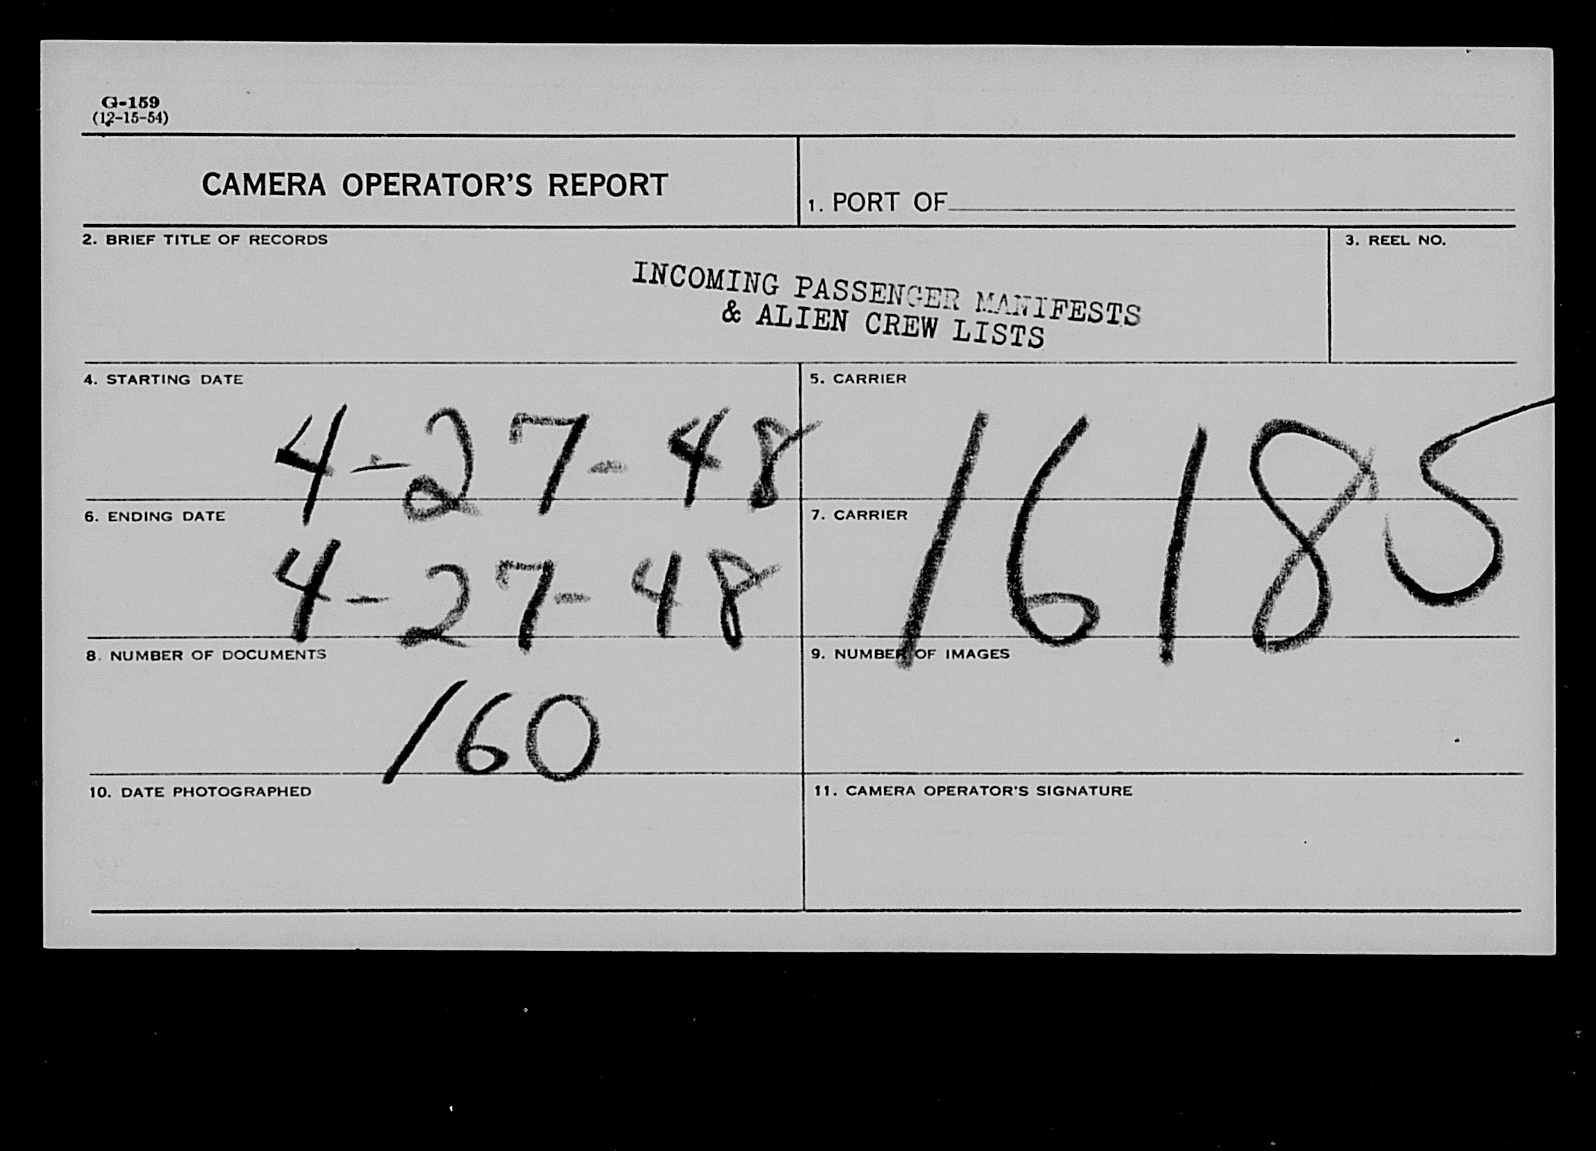 G-159
(12-15-54)
CAMERA OPERATOR'S REPORT
1. PORT OF
2. BRIEF TITLE OF RECORDS
3. REEL NO.
INCOMING PASSENGER MANIFESTS
& ALIEN CREW LISTS
4. STARTING DATE
4-27-48
5. CARRIER
16185
6. ENDING DATE
4-27-48
7. CARRIER
8. NUMBER OF DOCUMENTS
160
9. NUMBER OF IMAGES
10. DATE PHOTOGRAPHED
11. CAMERA OPERATOR'S SIGNATURE